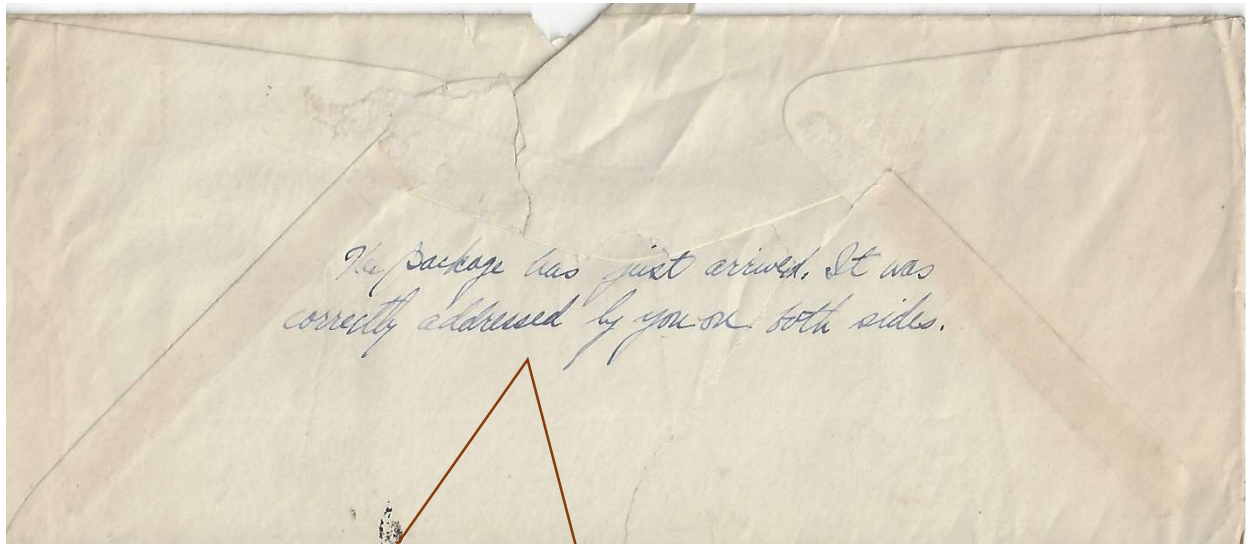 The package has just arrived. It was
correctly addressed by you on both sides.